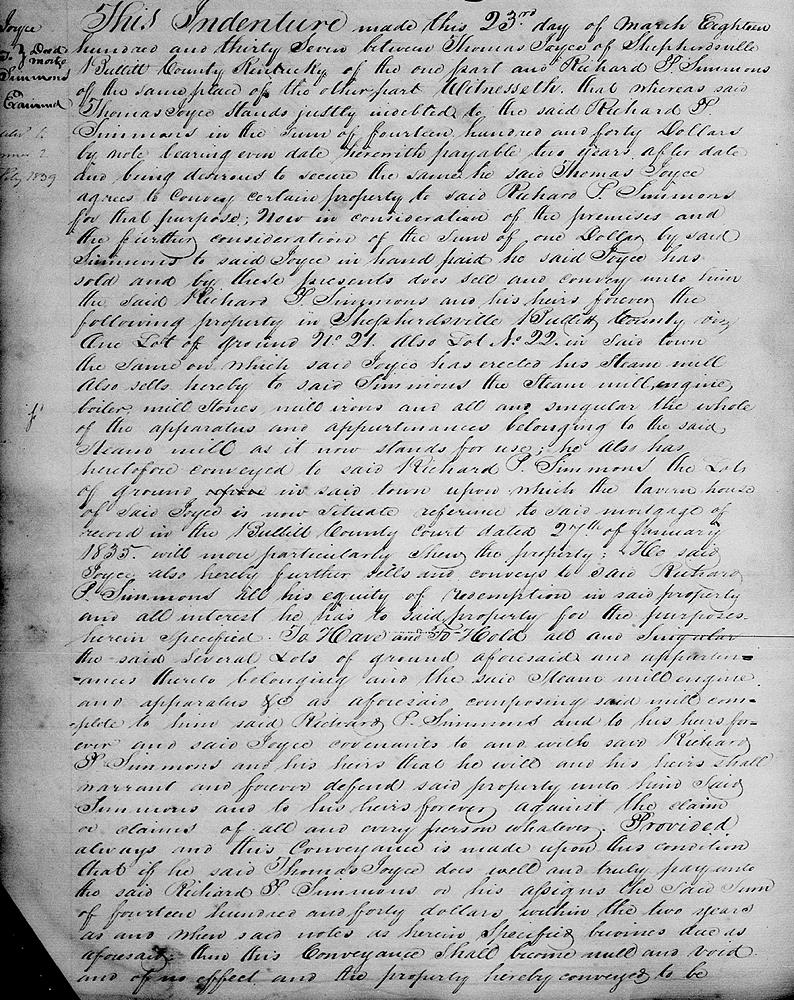 Joyce
To } Deed
mortg
Simmons
Examined
This Indenture made this 23rd day of March Eighteen
hundred and thirty Seven between Thomas Joyce of Shepherdsville
Bullitt County Kentucky of the one part and Richard P. Simmons
of the same place of the other part Witnesseth. that whereas said
Thomas Joyce Stands justly indebted to the said Richard P
Simmons in the Sum of fourteen hundred and forty Dollars
by note bearing even date herewith payable two years after date
and being desirous to secure the same he said Thomas Joyce
agrees to convey certain property to said Richard P. Simmons
for that purpose; Now in consideration of the premises and
the further consideration of the Sum of one Dollar by said
Simmons to said Joyce in hand paid he said Joyce has
sold and by these presents does sell and convey unto him
the said Richard P. Simmons and his heirs forever the
following property in Shepherdsville Bullitt County viz
One Lot of ground No 21. Also Lot No 22. in said town
the same on which said Joyce has erected his Steam mill
Also sells hereby to said Simmons the Steam mill, engine
boiler, mill Stones, mill irons and all and singular the whole
of the apparatus and appurtenances belonging to the said
Steam mill as it now stands for use; he also has
heretofore conveyed to said Richard P. Simmons the Lots
of ground in said town upon which the tavern house
of said Joyce is now Situate reference to said mortgage of
record in the Bullitt County court dated 27th of January
1835. will more particularly Shew the property; He said
Joyce also hereby further sells and conveys to said Richard
P. Simmons all his equity of redemption in said property
and all interest he has to said property for the purposes
herein specified. To Have and To Hold all and Singular
the said Several Lots of ground aforesaid and appurten=
=ances thereto belonging and the said Steam mill engine
and apparatus &c as aforesaid composing said mill com=
plete to him said Richard P. Simmons and to his heirs for=
ever and said Joyce covenants to and with said Richard
P Simmons and his heirs that he will and his heirs shall
warrant and forever defend said property unto him Said
Simmons and to his heirs forever against the claim
or claims of all and every person whatever. Provided
always and this Conveyance is made upon this condition
that if he said Thomas Joyce does well and truly pay unto
the said Richard P. Simmons or his assigns the Said Sum
of fourteen hundred and forty dollars within the two years
as and when said notes as herein Specified becomes due as
aforesaid; then this Conveyance Shall become null and void
and of no effect and the property hereby conveyed to be